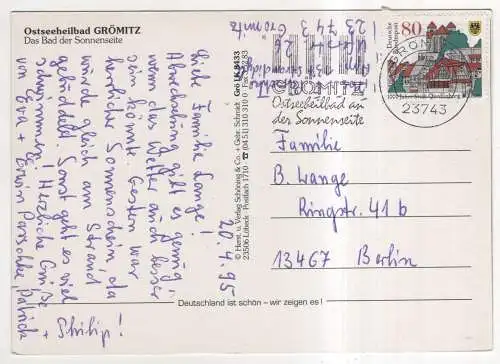 Ostseeheilbad GRÖMITZ
Das Bad der Sonnenseite
20.4.95
Liebe Familie Lange!
Abwechslung gibt es genug,
wenn das Wetter auch besser
sein könnte. Gestern war
herrlicher Sonnenschein da
wurde gleich am Strand
gebuddelt. Sonst geht es viel
schwimmen! Herzliche Grüße
von Eva + Erwin Patrick +
Philip!
© Herst. u. Verlag Schöning & Co. + Gebr. Schmidt
23506 Lübeck Postfach 1710 ☎ (04 51) 310
23743 Grömitz
Deutsche Bundespost
80
GRÖMITZ
Ostseeheilbad an
der Sonnenseite
23743
Familie
B. Lange
Ringstr. 41
13467 Berlin
Deutschland ist schön – wir zeigen es!